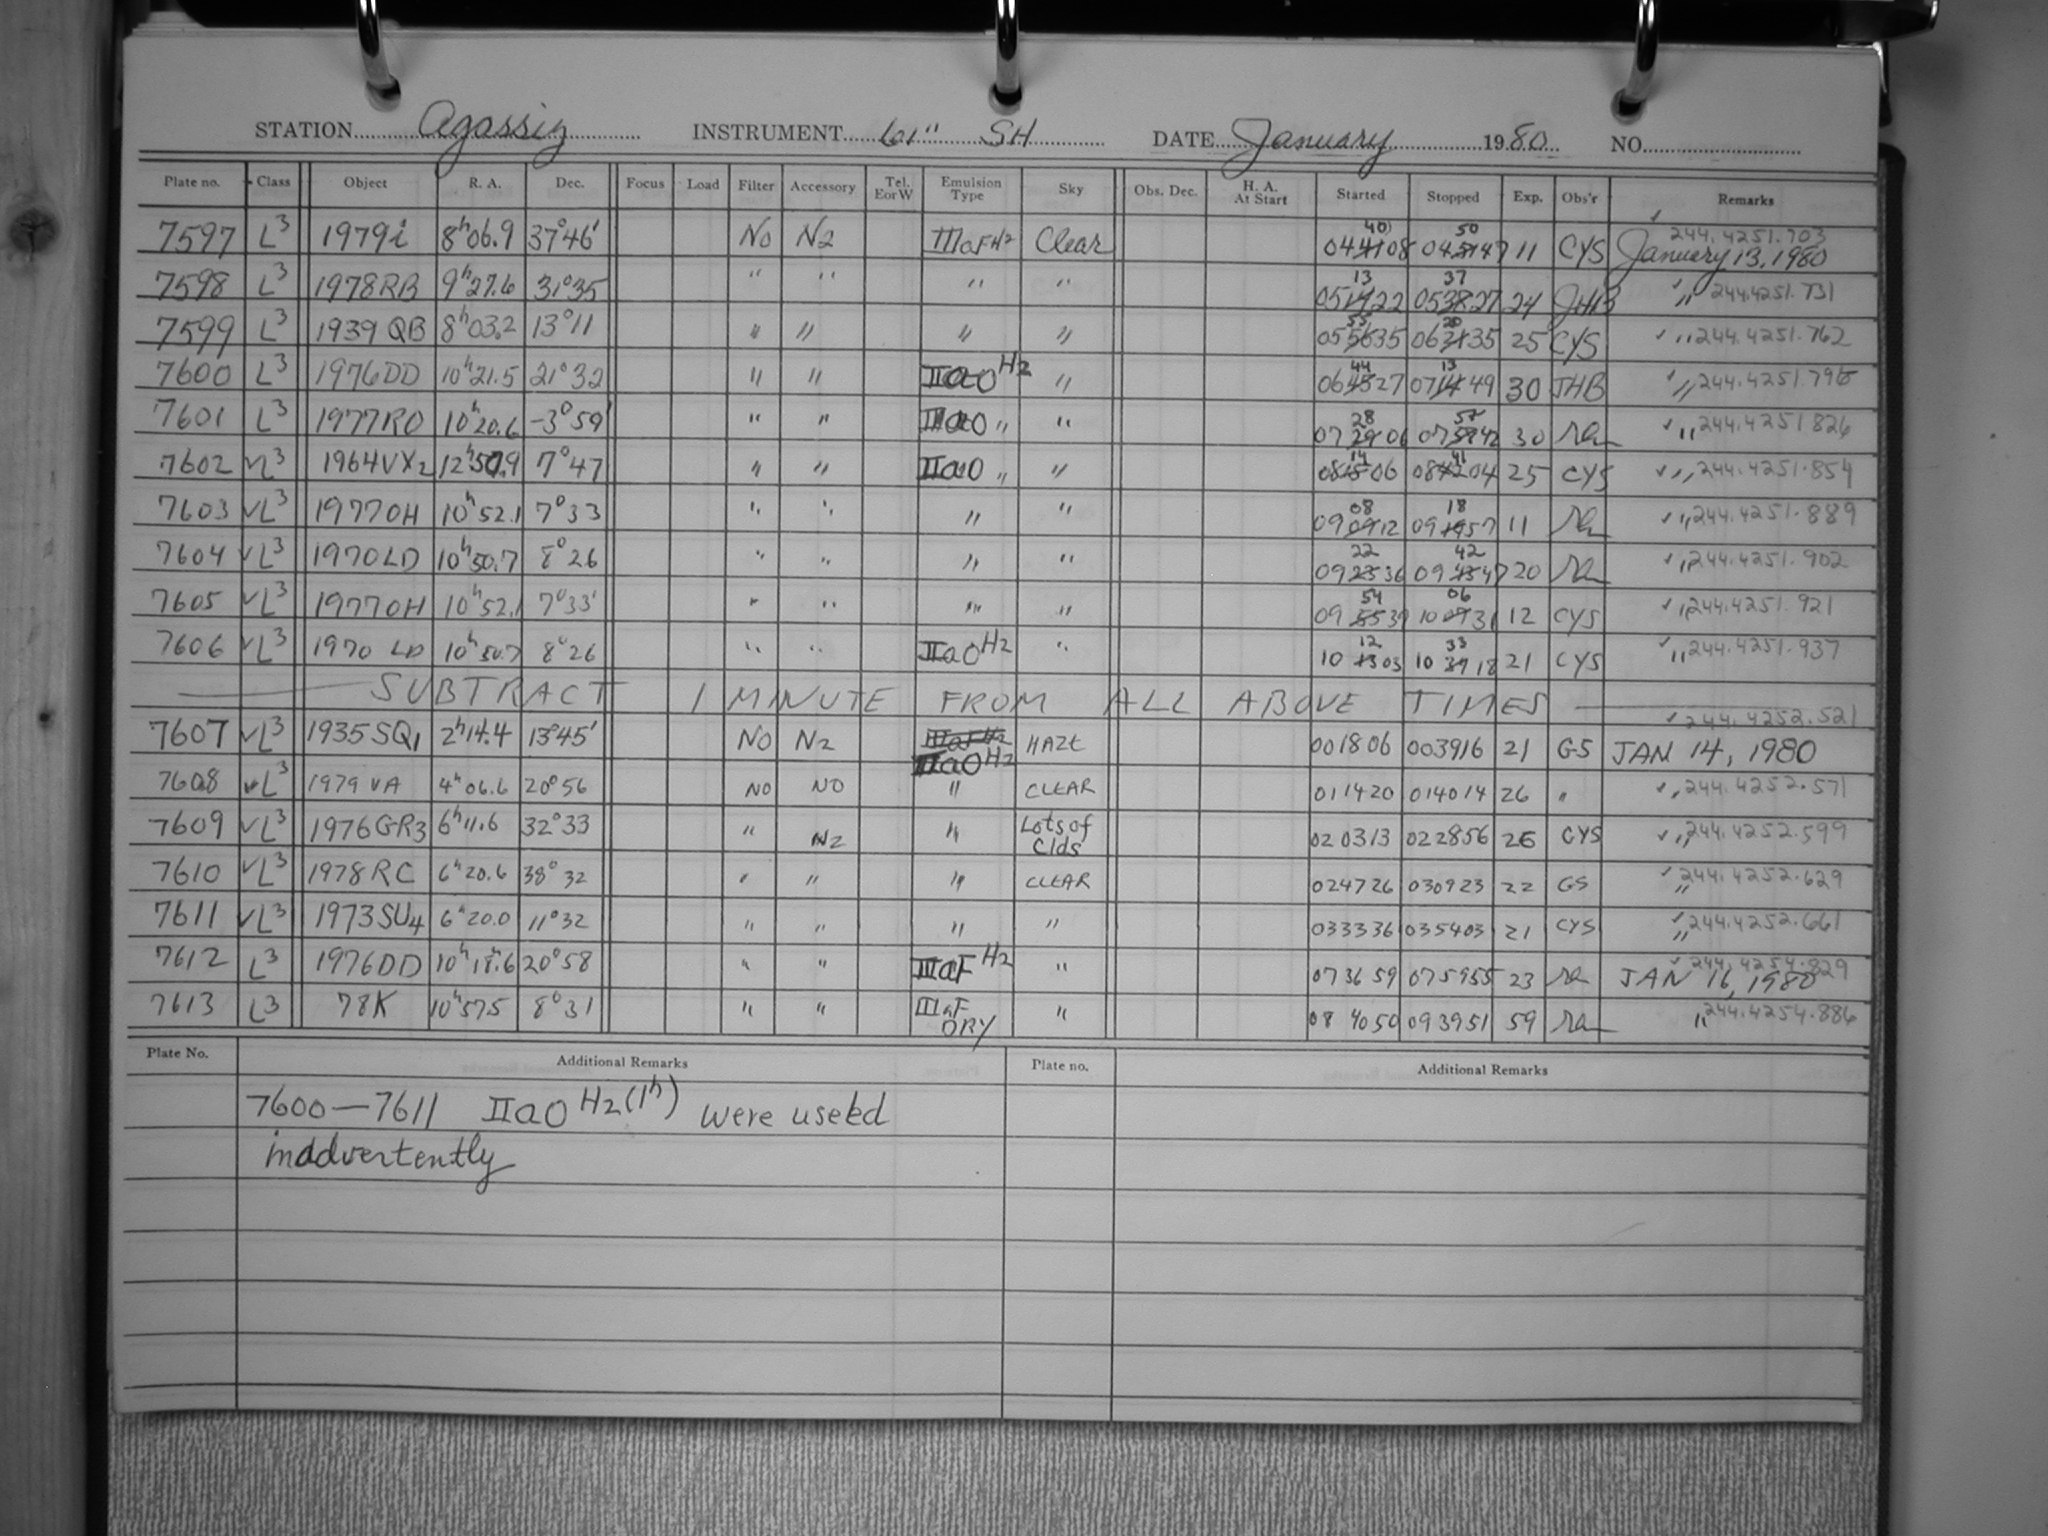 STATION Agassiz INSTRUMENT 61" SH DATE January 1980 NO.
Plate no. Class Object R. A. Dec. Focus Load Filter Accessory Tel. E or W Emulsion Type Sky Obs. Dec. H. A. At Start Started Stopped Exp. Obs'r Remarks
7597 L3 1979i 8h06.9 37°46' No N2 IIIaF H2 Clear 04 40 08 04 50 47 11 CYS 244.4251.703 January 13, 1980
7598 L3 1978RB 9h27.6 31°35 " " " " 05 13 22 05 37 27 24 JHB " 244.4251.731
7599 L3 1939 QB 8h03.2 13°11 " " " " 05 55 35 06 20 35 25 CYS " 244.4251.762
7600 L3 1976DD 10h21.5 21°32 " " IIaO H2 " 06 44 27 07 13 49 30 JHB " 244.4251.796
7601 L3 1977RO 10h20.6 -3°59' " " IIaO " " 07 28 06 07 57 42 30 " 244.4251.826
7602 L3 1964VX2 12h50.9 7°47 " " IIaO " " 08 14 06 08 41 04 25 CYS " 244.4251.854
7603 L3 1977OH 10h52.1 7°33 " " " " 09 08 12 09 18 57 11 " 244.4251.889
7604 L3 1970LD 10h50.7 8°26 " " " " 09 22 36 09 42 47 20 " 244.4251.902
7605 L3 1977OH 10h52.1 7°33' " " " " 09 54 39 10 06 31 12 CYS " 244.4251.921
7606 L3 1970 LD 10h50.7 8°26 " " IIaO H2 " 10 12 03 10 33 18 21 CYS " 244.4251.937
SUBTRACT 1 MINUTE FROM ALL ABOVE TIMES
7607 L3 1935SQ1 2h14.4 13°45' NO N2 IIIaF H2 IIaO H2 HAZE 001806 003916 21 GS 244.4252.521 JAN 14, 1980
7608 L3 1979 VA 4h06.6 20°56 NO NO " CLEAR 011420 014014 26 " " 244.4252.571
7609 L3 1976GR3 6h11.6 32°33 " N2 " Lots of Clds 020313 022856 26 CYS " 244.4252.599
7610 L3 1978RC 6h20.6 38°32 " " " CLEAR 024726 030923 22 GS " 244.4252.629
7611 L3 1973SU4 6h20.0 11°32 " " " " 033336 035403 21 CYS " 244.4252.661
7612 L3 1976DD 10h18.6 20°58 " " IIIaF H2 " 073659 075955 23 244.4254.829 JAN 16, 1980
7613 L3 78K 10h575 8°31 " " IIIaF DRY " 08 4050 093951 59 " 244.4254.886
Plate No. Additional Remarks Plate no. Additional Remarks
7600—7611 IIaO H2(1h) were used
inadvertently